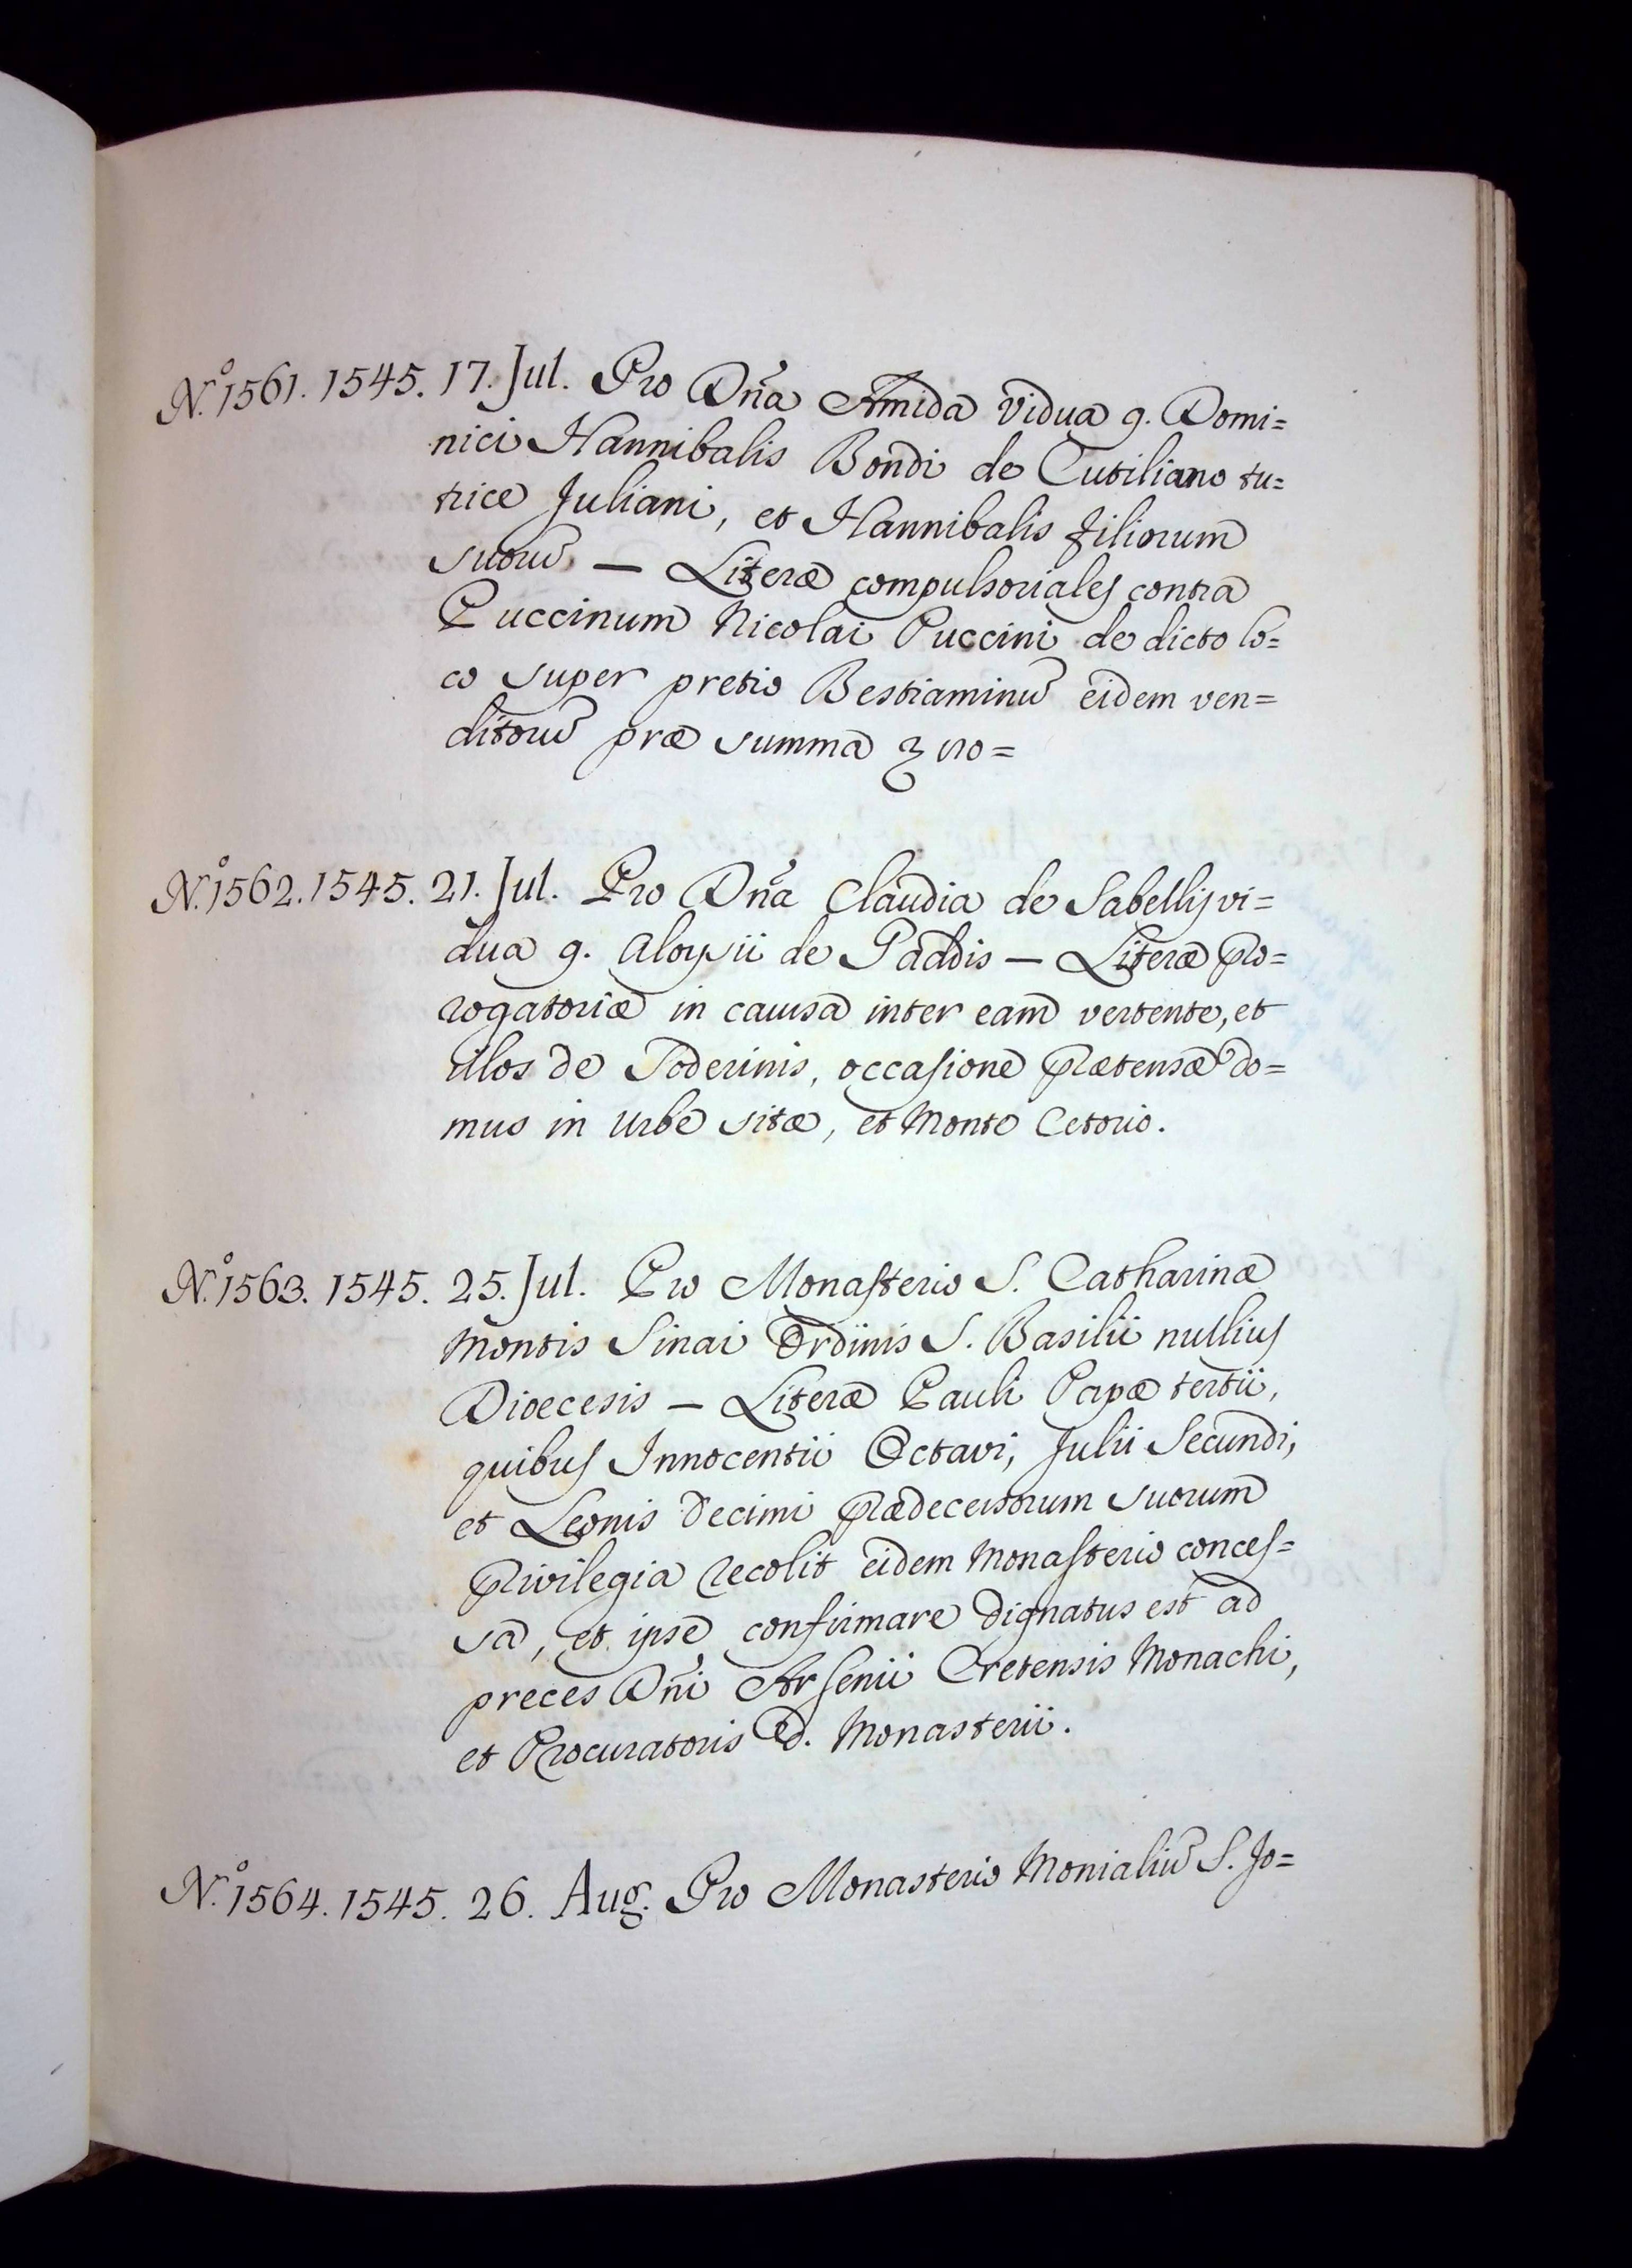 N.º 1561. 1545. 17. Jul. Pro Dn̄a Amida Vidua q. Domi=
nici Hannibalis Bondi de Cutiliano tu=
trice Juliani, et Hannibalis filiorum
suorū — Literæ compulsoriales contra
Puccinum Nicolai Puccini de dicto lo=
co super pretio Bestiaminū eidem ven=
ditorū præ summa
N.º 1562. 1545. 21. Jul. Pro Dn̄a Claudia de Sabellis vi=
dua q. Aloysii de Gaddis — Literæ pro=
rogatoriæ in causa inter eam vertente, et
illos de Toderinis, occasione prætensæ do=
mus in Urbe sitæ, et Monte Cetorio.
N.º 1563. 1545. 25. Jul. Pro Monasterio S. Catharinæ
Montis Sinai Ordinis S. Basilii nullius
Dioecesis — Literæ Pauli Papæ tertii,
quibus Innocentii Octavi, Julii Secundi,
et Leonis Decimi prædecessorum suorum
privilegia recolit eidem Monasterio conces=
sa, et ipse confirmare dignatus est ad
preces Dn̄i Arsenii Cretensis Monachi,
et Procuratoris d. Monasterii.
N.º 1564. 1545. 26. Aug. Pro Monasterio Monialiū S. Jo=